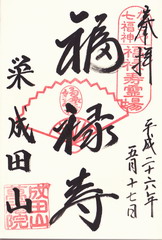 奉拝
七福神
霊場
平成二十六年
五月十七日
福禄寿
成田山
成田山
院